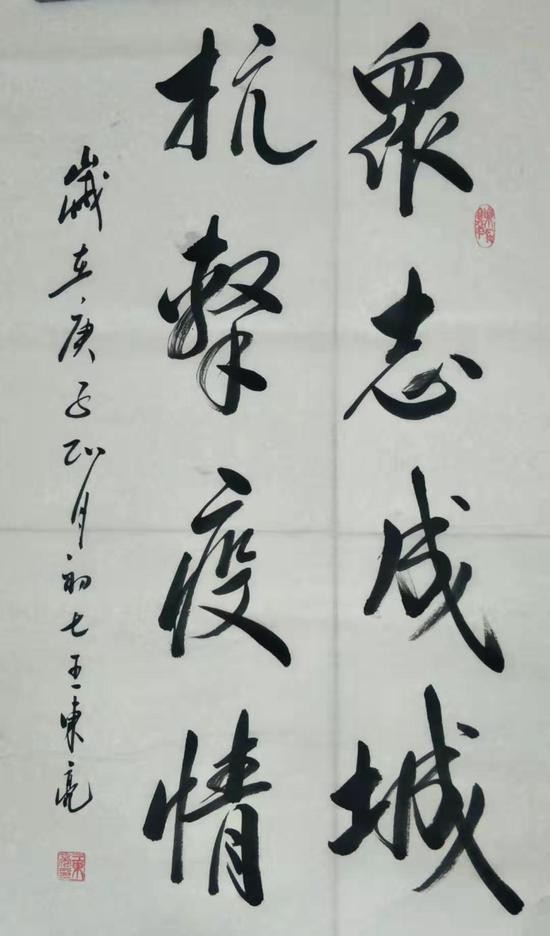 眾志成城
抗擊疫情
歲在庚子正月初七王東亮